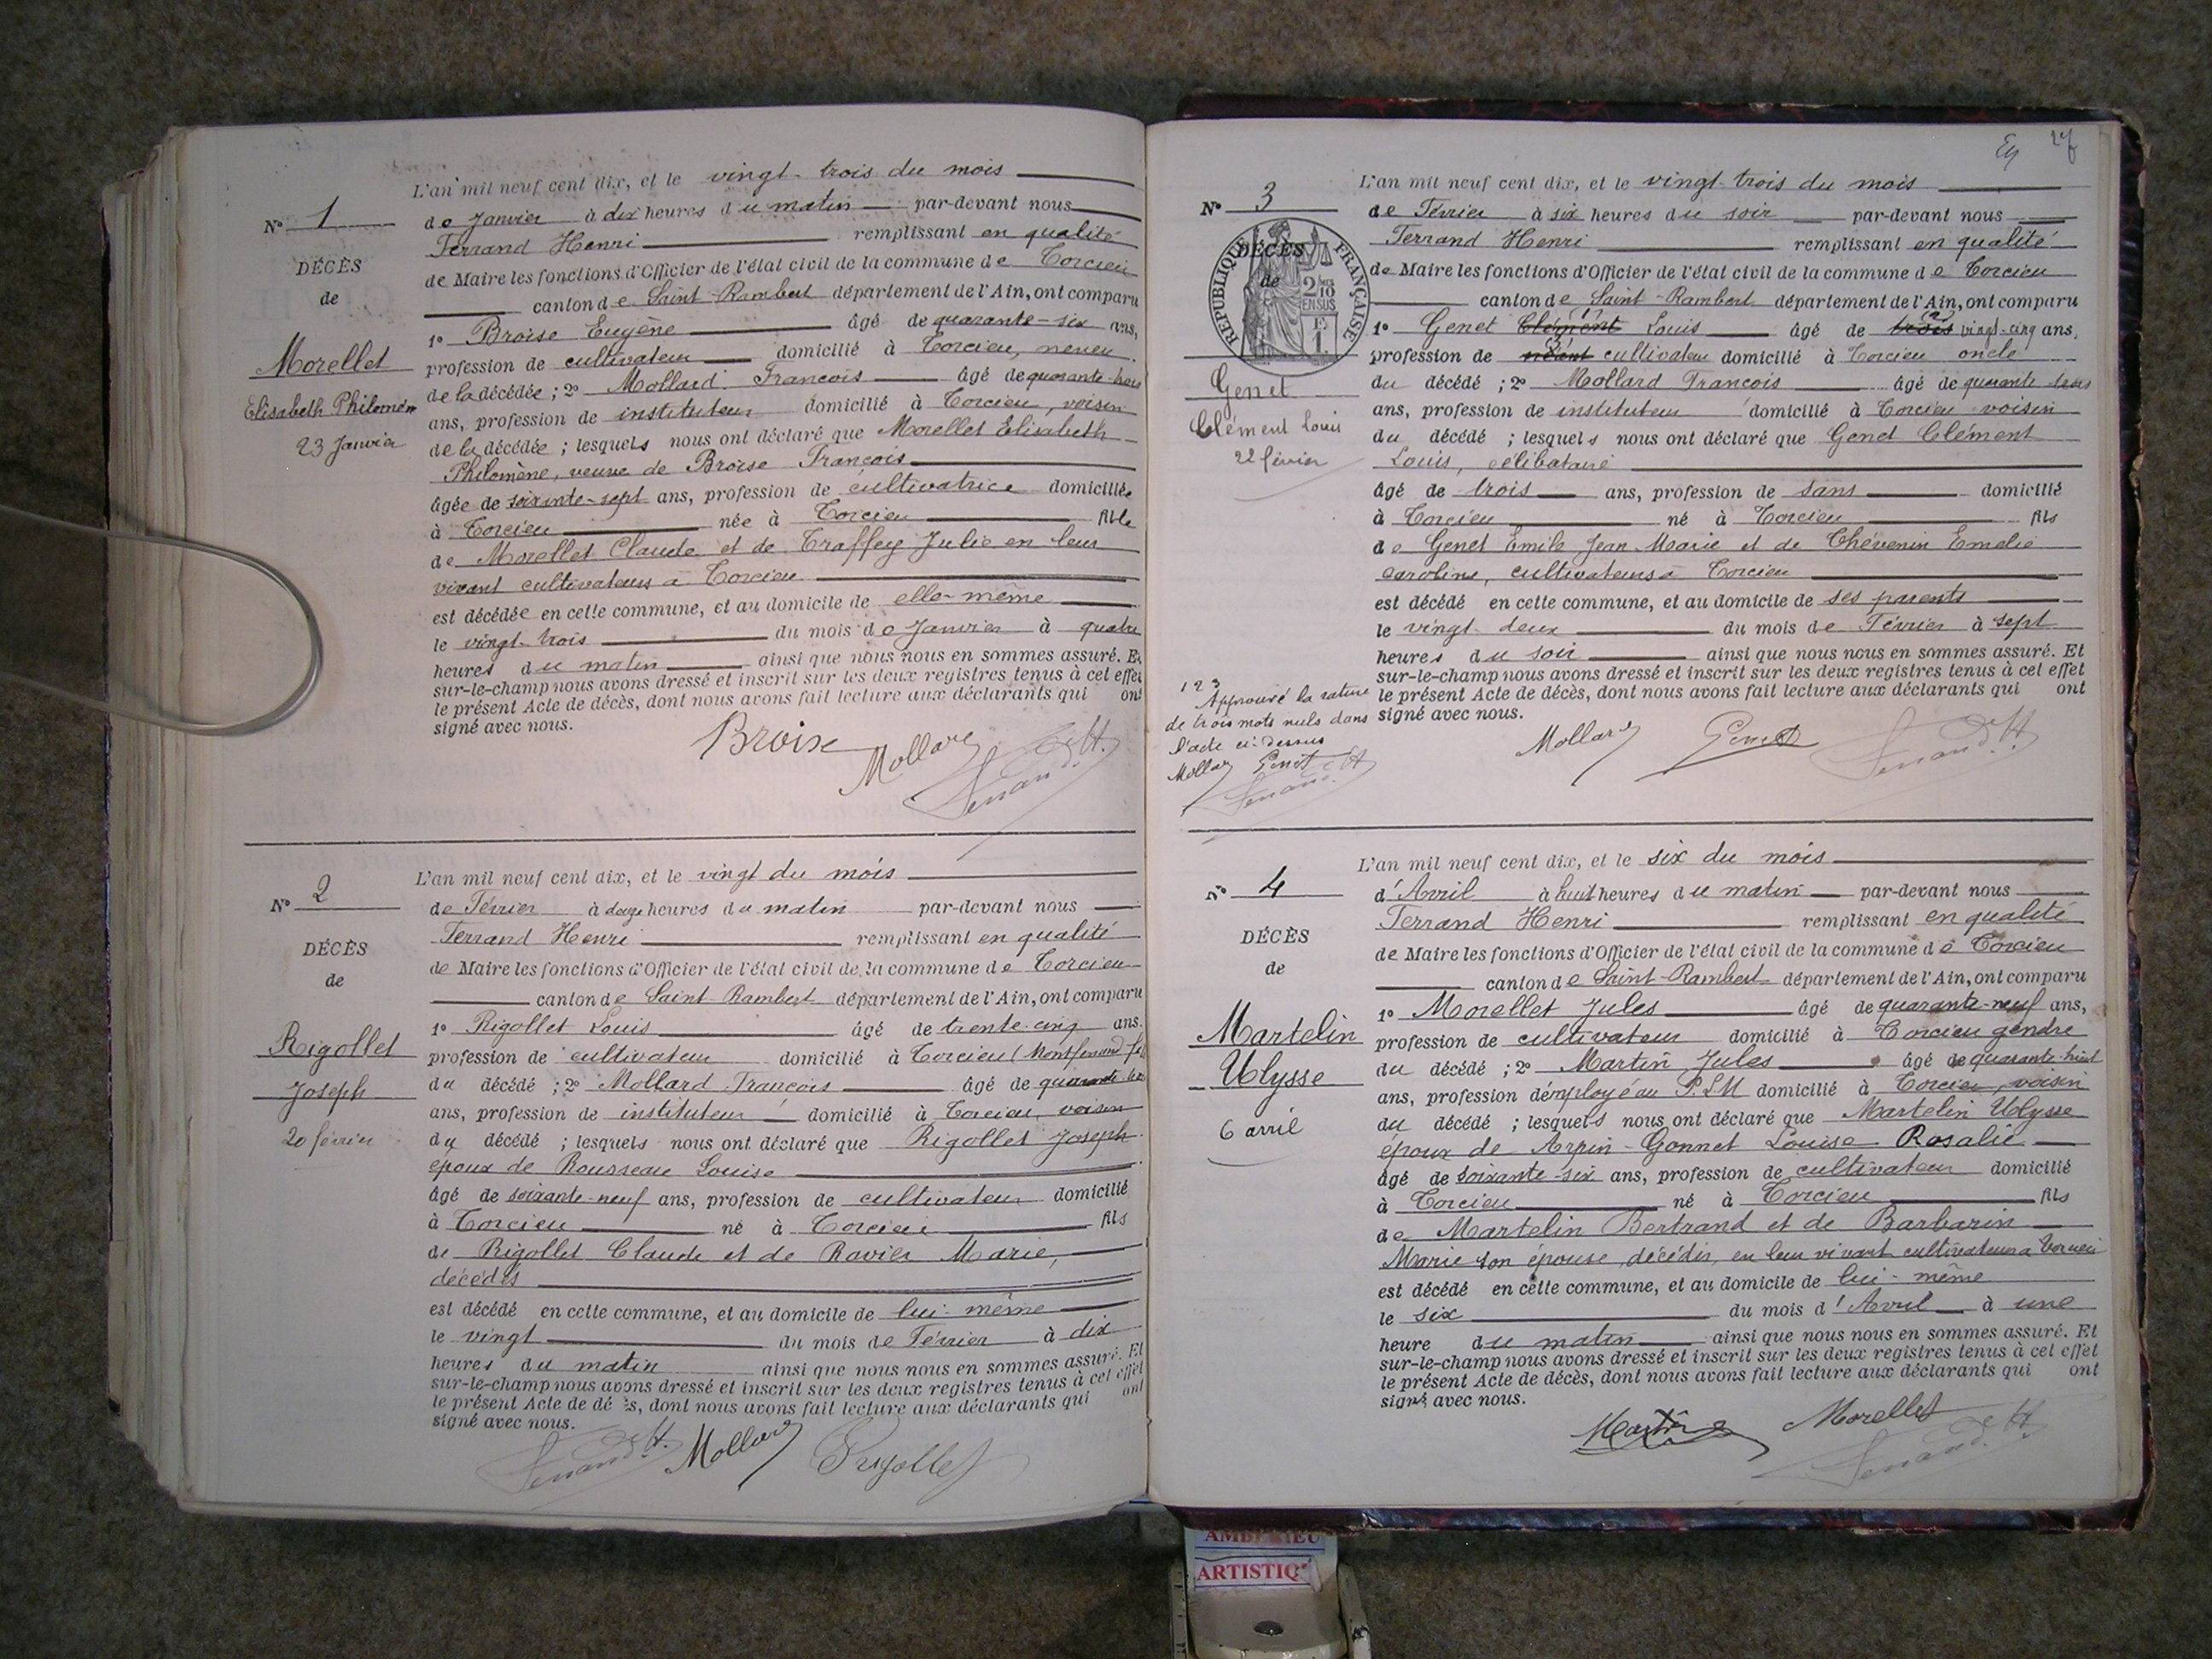 N° 1
DÉCÈS
de
Morellet
Elisabeth Philomèn
23 Janvier
L'an mil neuf cent dix, et le vingt-trois du mois
de Janvier à dix heures du matin par-devant nous
Ferrand Henri remplissant en qualité
de Maire les fonctions d'Officier de l'état civil de la commune de Torcieu
canton de Saint-Rambert département de l'Ain, ont comparu
1° Broise Eugène âgé de quarante-six ans,
profession de cultivateur domicilié à Torcieu, neveu
de la décédée ; 2° Mollard François âgé de quarante-trois
ans, profession de instituteur domicilié à Torcieu, voisin
de la décédée ; lesquels nous ont déclaré que Morellet Elisabeth
Philomène, veuve de Broise François
âgée de soixante-sept ans, profession de cultivatrice domiciliée
à Torcieu née à Torcieu fille
de Morellet Claude et de Traffey Julie en leur
vivant cultivateurs à Torcieu
est décédée en cette commune, et au domicile de elle-même
le vingt-trois du mois de Janvier à quatre
heures du matin ainsi que nous nous en sommes assuré. Et
sur-le-champ nous avons dressé et inscrit sur les deux registres tenus à cet effet
le présent Acte de décès, dont nous avons fait lecture aux déclarants qui ont
signé avec nous.
Broise Mollard Ferrand H.
N° 2
DÉCÈS
de
Rigollet
Joseph
20 février
L'an mil neuf cent dix, et le vingt du mois
de Février à douze heures du matin par-devant nous
Ferrand Henri remplissant en qualité
de Maire les fonctions d'Officier de l'état civil de la commune de Torcieu
canton de Saint-Rambert département de l'Ain, ont comparu
1° Rigollet Louis âgé de trente-cinq ans.
profession de cultivateur domicilié à Torcieu (Montferrand)
du décédé ; 2° Mollard François âgé de quarante-trois
ans, profession de instituteur domicilié à Torcieu, voisin
du décédé ; lesquels nous ont déclaré que Rigollet Joseph
époux de Rousseau Louise
âgé de soixante-neuf ans, profession de cultivateur domicilié
à Torcieu né à Torcieu fils
de Rigollet Claude et de Ravier Marie,
décédés
est décédé en cette commune, et au domicile de lui-même
le vingt du mois de Février à dix
heures du matin ainsi que nous nous en sommes assuré. Et
sur-le-champ nous avons dressé et inscrit sur les deux registres tenus à cet effet
le présent Acte de décès, dont nous avons fait lecture aux déclarants qui ont
signé avec nous.
Ferrand H. Mollard Rigollet
N° 3
RÉPUBLIQUE FRANÇAISE
2/10 EN SUS
1
DÉCÈS
de
Genet
Clément Louis
22 février
L'an mil neuf cent dix, et le vingt-trois du mois
de Février à six heures du soir par-devant nous
Ferrand Henri remplissant en qualité
de Maire les fonctions d'Officier de l'état civil de la commune de Torcieu
canton de Saint-Rambert département de l'Ain, ont comparu
1° Genet Clément Louis âgé de trois vingt-cinq ans,
profession de néant cultivateur domicilié à Torcieu oncle
du décédé ; 2° Mollard François âgé de quarante-trois
ans, profession de instituteur domicilié à Torcieu voisin
du décédé ; lesquels nous ont déclaré que Genet Clément
Louis, célibataire
âgé de trois ans, profession de sans domicilié
à Torcieu né à Torcieu fils
de Genet Emile Jean-Marie et de Chevenin Emelie
caroline, cultivateurs à Torcieu
est décédé en cette commune, et au domicile de ses parents
le vingt-deux du mois de Février à sept
heures du soir ainsi que nous nous en sommes assuré. Et
sur-le-champ nous avons dressé et inscrit sur les deux registres tenus à cet effet
le présent Acte de décès, dont nous avons fait lecture aux déclarants qui ont
signé avec nous.
1 2 3
Approuvé la rature
de trois mots nuls dans
l'acte ci-dessus
Mollard Genet Ferrand H
Mollard Genet Ferrand H
N° 4
DÉCÈS
de
Martelin
Ulysse
6 avril
L'an mil neuf cent dix, et le six du mois
d'Avril à huit heures du matin par-devant nous
Ferrand Henri remplissant en qualité
de Maire les fonctions d'Officier de l'état civil de la commune de Torcieu
canton de Saint-Rambert département de l'Ain, ont comparu
1° Morellet Jules âgé de quarante-neuf ans,
profession de cultivateur domicilié à Torcieu gendre
du décédé ; 2° Martin Jules âgé de quarante-huit
ans, profession d'employé au P.L.M domicilié à Torcieu, voisin
du décédé ; lesquels nous ont déclaré que Martelin Ulysse
époux de Arpin-Gonnet Louise Rosalie
âgé de soixante-six ans, profession de cultivateur domicilié
à Torcieu né à Torcieu fils
de Martelin Bertrand et de Barbarin
Marie son épouse, décédés, en leur vivant cultivateurs à Torcieu
est décédé en cette commune, et au domicile de lui-même
le six du mois d'Avril à une
heure du matin ainsi que nous nous en sommes assuré. Et
sur-le-champ nous avons dressé et inscrit sur les deux registres tenus à cet effet
le présent Acte de décès, dont nous avons fait lecture aux déclarants qui ont
signé avec nous.
Martin Morellet Ferrand H.
AMBÉRIEU
ARTISTIQ